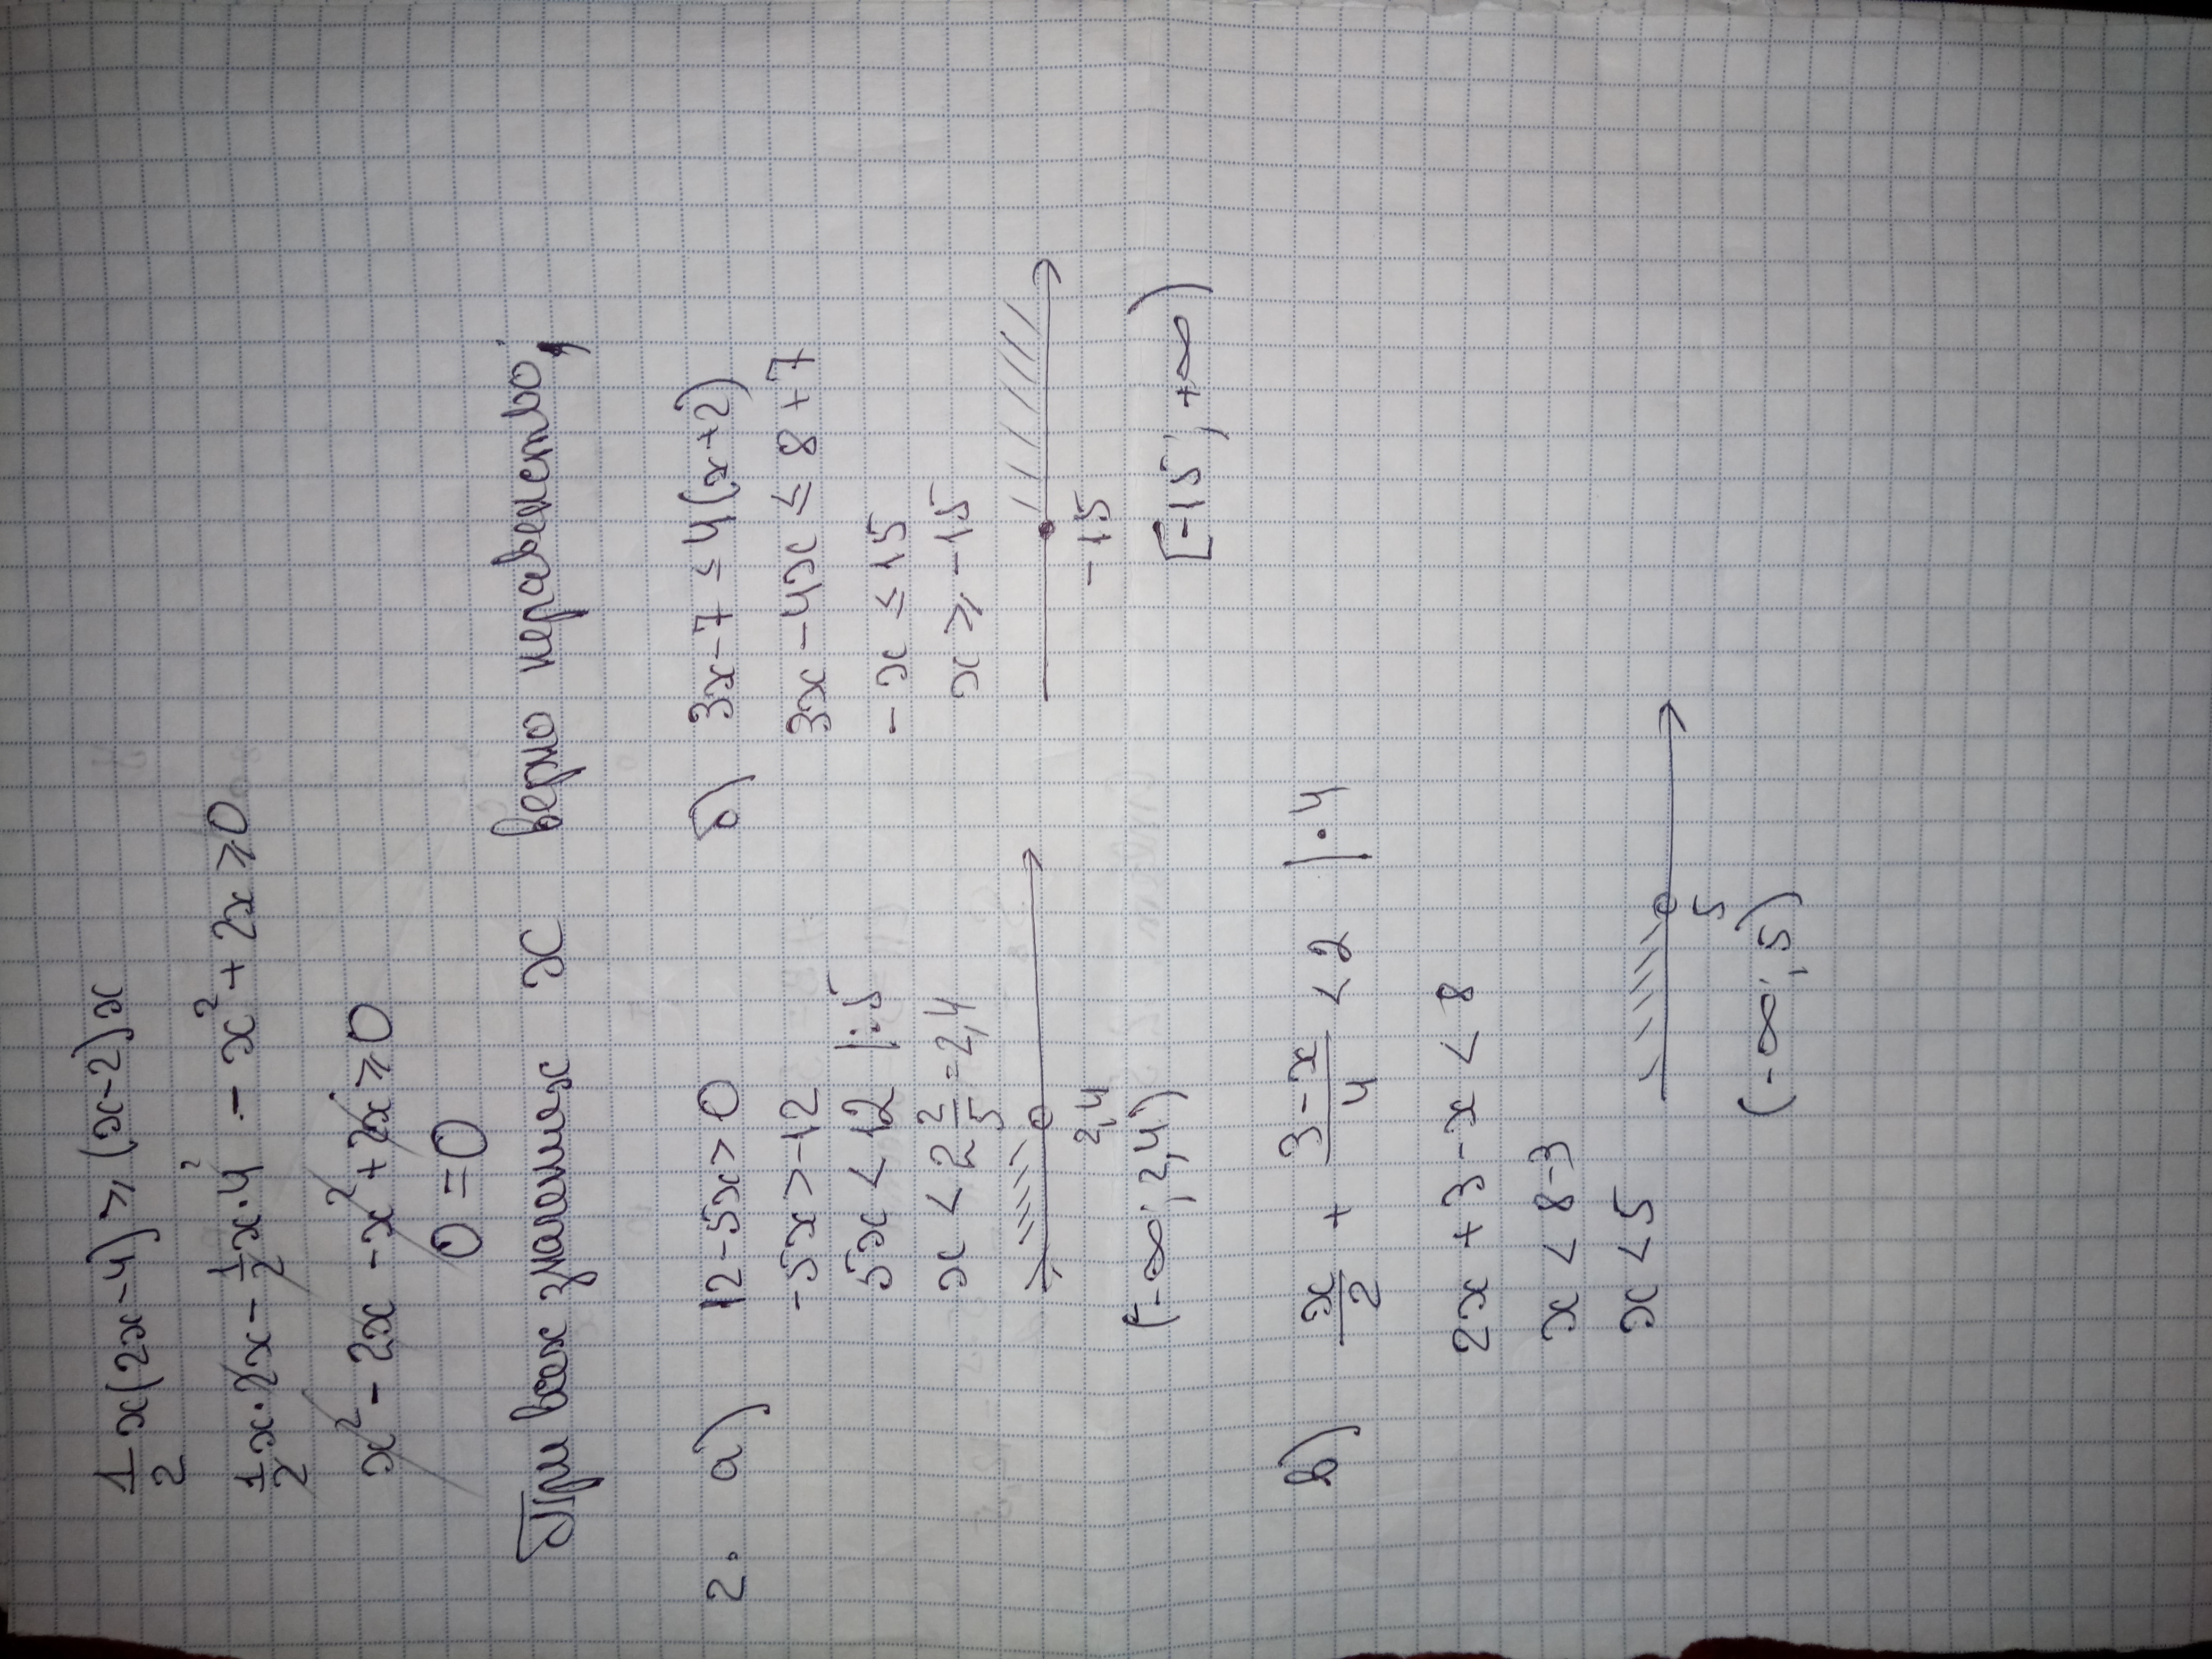 1/2 x(2x-4) ⩾ (x-2)x
1/2 x·2x - 1/2 x·4² - x² + 2x ⩾ 0
x² - 2x - x² + 2x ⩾ 0
0 = 0
При всех значениях x верно неравенство,
2. а) 12-5x > 0
-5x > -12
5x < 12 |:5
x < 2 2/5 = 2,4
2,4
(-∞; 2,4)
б) 3x-7 ≤ 4(x+2)
3x-4x ≤ 8+7
-x ≤ 15
x ⩾ -15
-15
[-15; +∞)
в) x/2 + (3-x)/4 < 2 |·4
2x + 3 - x < 8
x < 8-3
x < 5
5
(-∞; 5)